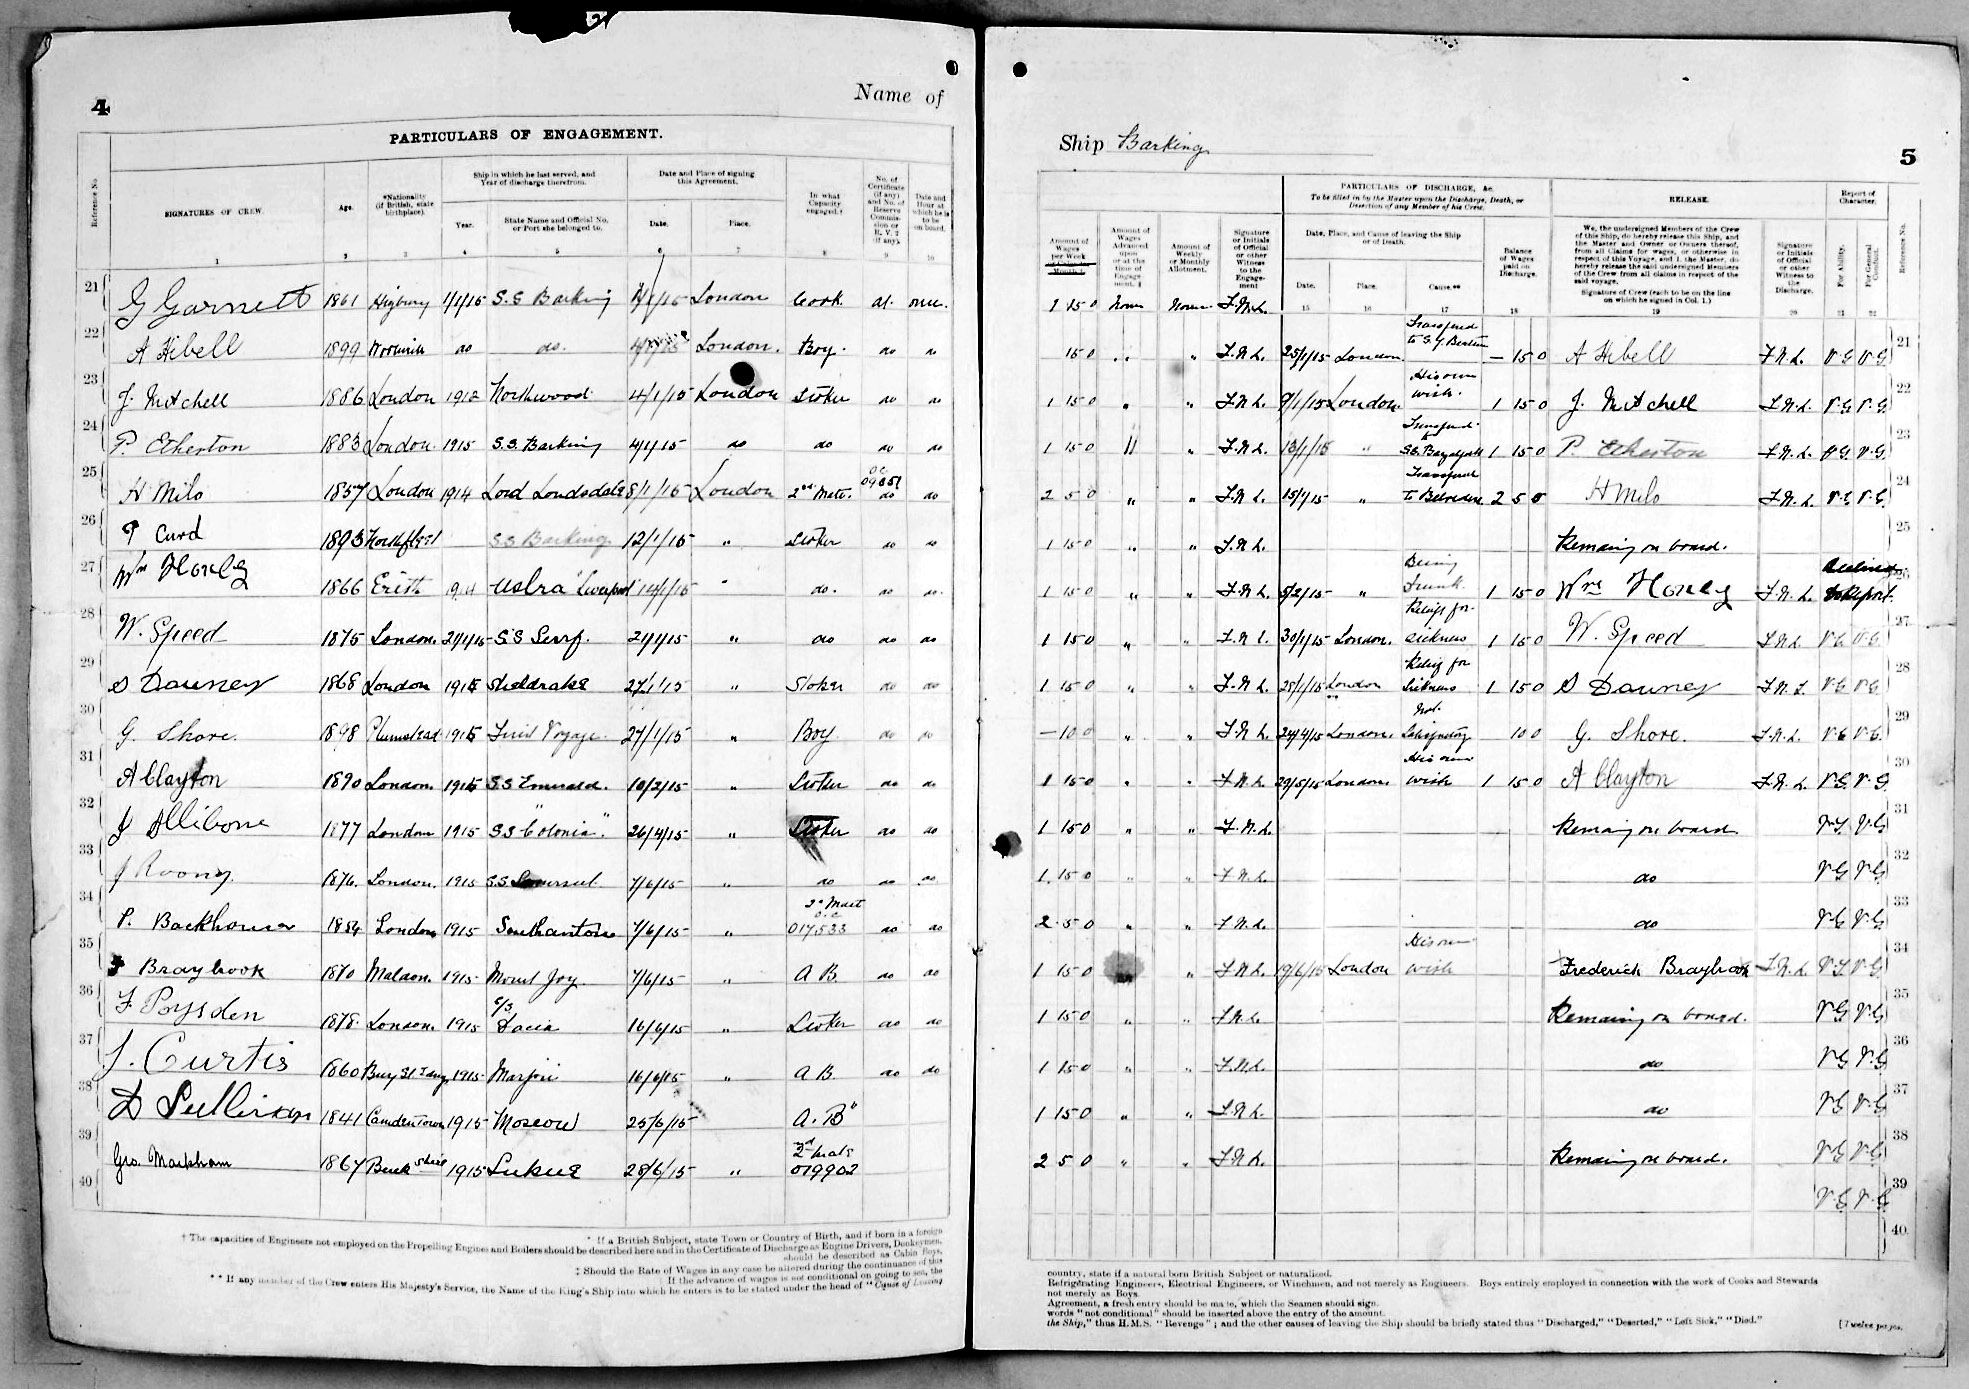 4
Name of
PARTICULARS OF ENGAGEMENT.
Reference No.
SIGNATURES OF CREW.
Age.
*Nationality (if British, state birthplace).
Ship in which he last served, and Year of discharge therefrom.
Year.
State Name and Official No. or Port she belonged to.
Date and Place of signing this Agreement.
Date.
Place.
In what Capacity engaged.†
No. of Certificate (if any) and No. of Reserve Commission or R. V. 2 (if any).
Date and Hour at which he is to be on board.
1 2 3 4 5 6 7 8 9 10
21 G Garnett 1861 Higbury 1/1/15 S.S Barking 4/1/15 London Cook at once.
22 A Hibell 1899 Woolwich do do. 4/1/15 London. Boy. do do
23 J. Mitchell 1886 London 1912 Northwood. 4/1/15 London Stoker do do
24 P. Etherton 1883 London. 1915 S.S. Barking 4/1/15 do do do do
25 H Milo 1857 London 1914 Lord Londsdale 8/1/15 London 2nd Mate. do do
26 P Curd 1893 Northfleet S.S Barking. 12/1/15 " Stoker do do
27 Wm Honey 1866 Erith 1914 Liverpool 14/1/15 " do. do do.
28 W. Speed 1875 London. 21/1/15 S.S Serrf. 21/1/15 " do do do
29 S Downey 1868 London 1915 Sheldrake 27/1/15 " Stoker do do
30 G. Shore. 1898 Plumstead 1915 First Voyage. 27/1/15 " Boy do do
31 A Clayton 1890 London. 1915 S.S Emerald. 10/2/15 " Stoker do do
32 J Allibone 1877 London 1915 S.S "Colonia". 26/4/15 " Stoker do do
33 J Roony. 1876. London. 1915 S.S Somerset. 7/6/15 " do do do
34 P. Backhouse 1854 London 1915 7/6/15 " 2d Mate 017533 do do
35 F Braybrook 1870 Maldon. 1915 Mount Joy. 7/6/15 " A B. do do
36 F. Poysden 1878. London. 1915 C/S Dacia 16/6/15 " Stoker do do
37 J. Curtis 1860 1915 Marjorie 16/6/15 " A B. do do
38 1841 Camden Town 1915 Moscow 25/6/15 A. B
39 Geo. Markham 1867 Buckshire 1915 28/6/15 " 2d Mate 019902
40
* If a British Subject, state Town or Country of Birth, and if born in a foreign
† The capacities of Engineers not employed on the Propelling Engines and Boilers should be described here and in the Certificate of Discharge as Engine Drivers, Donkeymen,
should be described as Cabin Boys,
‡ Should the Rate of Wages in any case be altered during the continuance of this
|| If the advance of wages is not conditional on going to sea, the
** If any member of the Crew enters His Majesty's Service, the Name of the King's Ship into which he enters is to be stated under the head of "Cause of Leaving
Ship Barking
5
Amount of Wages per Week
Amount of Wages Advanced upon or at the time of Engagement.
Amount of Weekly or Monthly Allotment.
Signature or Initials of Official or other Witness to the Engagement
PARTICULARS OF DISCHARGE, &c.
To be filled in by the Master upon the Discharge, Death, or Desertion of any Member of his Crew.
Date, Place, and Cause of leaving the Ship or of Death.
Date.
Place.
Cause.**
Balance of Wages paid on Discharge.
RELEASE.
We, the undersigned Members of the Crew of this Ship, do hereby release this Ship, and the Master and Owner or Owners thereof, from all Claims for wages, or otherwise in respect of this Voyage, and I, the Master, do hereby release the said undersigned Members of the Crew from all claims in respect of the said voyage.
Signature of Crew (each to be on the line on which he signed in Col. 1.)
Signature or Initials of Official or other Witness to the Discharge.
Report of Character.
For Ability.
For General Conduct.
Reference No.
15 16 17 18 19 20 21 22
1 15 0 None None F.N.L.
15 0 " " F.N.L. 25/1/15 London. Transferred to S.Y. — 15 0 A Hibell F.N.L. V.G V.G 21
1 15 0 " " F.N.L. 9/1/15 London. His own wish. 1 15 0 J. Mitchell F.N.L. V.G V.G. 22
1 15 0 " " F.N.L. 13/1/15 " Transferred to S.S. 1 15 0 P. Etherton F.N.L. V.G. V.G. 23
2 5 0 " " F.N.L. 15/1/15 " Transferred to Belvedere 2 5 0 H Milo F.N.L. V.G V.G. 24
1 15 0 " " F.N.L. Remaing on board. 25
1 15 0 " " F.N.L. 5/2/15 " Being Drunk. 1 15 0 Wm Honey F.N.L. Declined to Report. 26
1 15 0 " " F.N.L. 30/1/15 London. sickness 1 15 0 W. Speed F.N.L. V.G V.G. 27
1 15 0 " " F.N.L. 28/1/15 London Sickness 1 15 0 S Downey F.N.L. V.G V.G. 28
— 10 0 " " F.N.L. 24/4/15 London. Not Satisfactory 10 0 G. Shore. F.N.L. V.G V.G. 29
1 15 0 " " F.N.L. 29/5/15 London. His own wish 1 15 0 A Clayton F.N.L. V.G. V.G. 30
1 15 0 " " F.N.L. Remaing on board V.G. V.G. 31
1 15 0 " " F.N.L. do V.G V.G. 32
2 5 0 " " F.N.L. do V.G V.G. 33
1 15 0 " F.N.L. 19/6/15 London His own wish Frederick Braybrook F.N.L. V.G V.G. 34
1 15 0 " " F.N.L. Remaing on board. V.G V.G. 35
1 15 0 " " F.N.L. do V.G V.G. 36
1 15 0 " " F.N.L. do V.G V.G. 37
2 5 0 " " F.N.L. Remaing on board. V.G V.G. 38
V.G V.G 39
40
country, state if a natural born British Subject or naturalized.
Refrigerating Engineers, Electrical Engineers, or Winchmen, and not merely as Engineers. Boys entirely employed in connection with the work of Cooks and Stewards
not merely as Boys.
Agreement, a fresh entry should be made, which the Seamen should sign.
words "not conditional" should be inserted above the entry of the amount.
the Ship," thus H.M.S. "Revenge"; and the other causes of leaving the Ship should be briefly stated thus "Discharged," "Deserted," "Left Sick," "Died."
[Twelve pages.